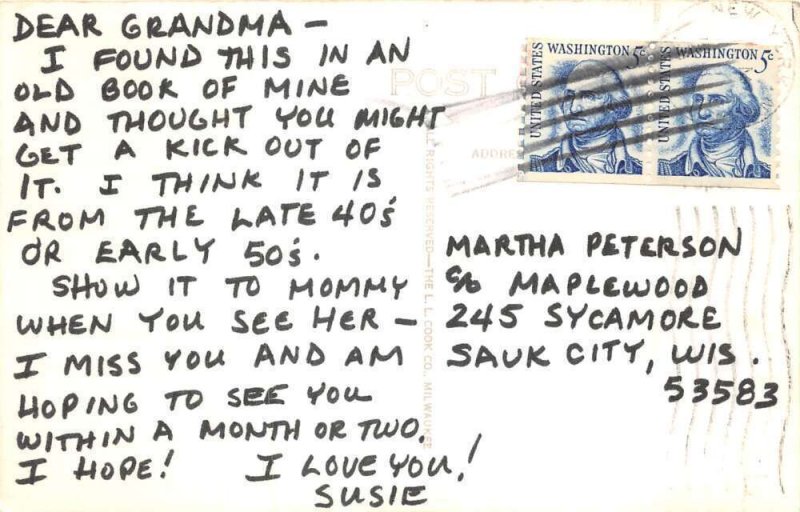 DEAR GRANDMA —
I FOUND THIS IN AN
OLD BOOK OF MINE
AND THOUGHT YOU MIGHT
GET A KICK OUT OF
IT. I THINK IT IS
FROM THE LATE 40's
OR EARLY 50's.
SHOW IT TO MOMMY
WHEN YOU SEE HER —
I MISS YOU AND AM
HOPING TO SEE YOU
WITHIN A MONTH OR TWO.
I HOPE! I LOVE YOU!
SUSIE
POST
ADDRE
ALL RIGHTS RESERVED—THE L. L. COOK CO., MILWAUKEE
UNITED STATES
WASHINGTON 5c
UNITED STATES
WASHINGTON 5c
NEW
MARTHA PETERSON
c/o MAPLEWOOD
245 SYCAMORE
SAUK CITY, WIS.
53583